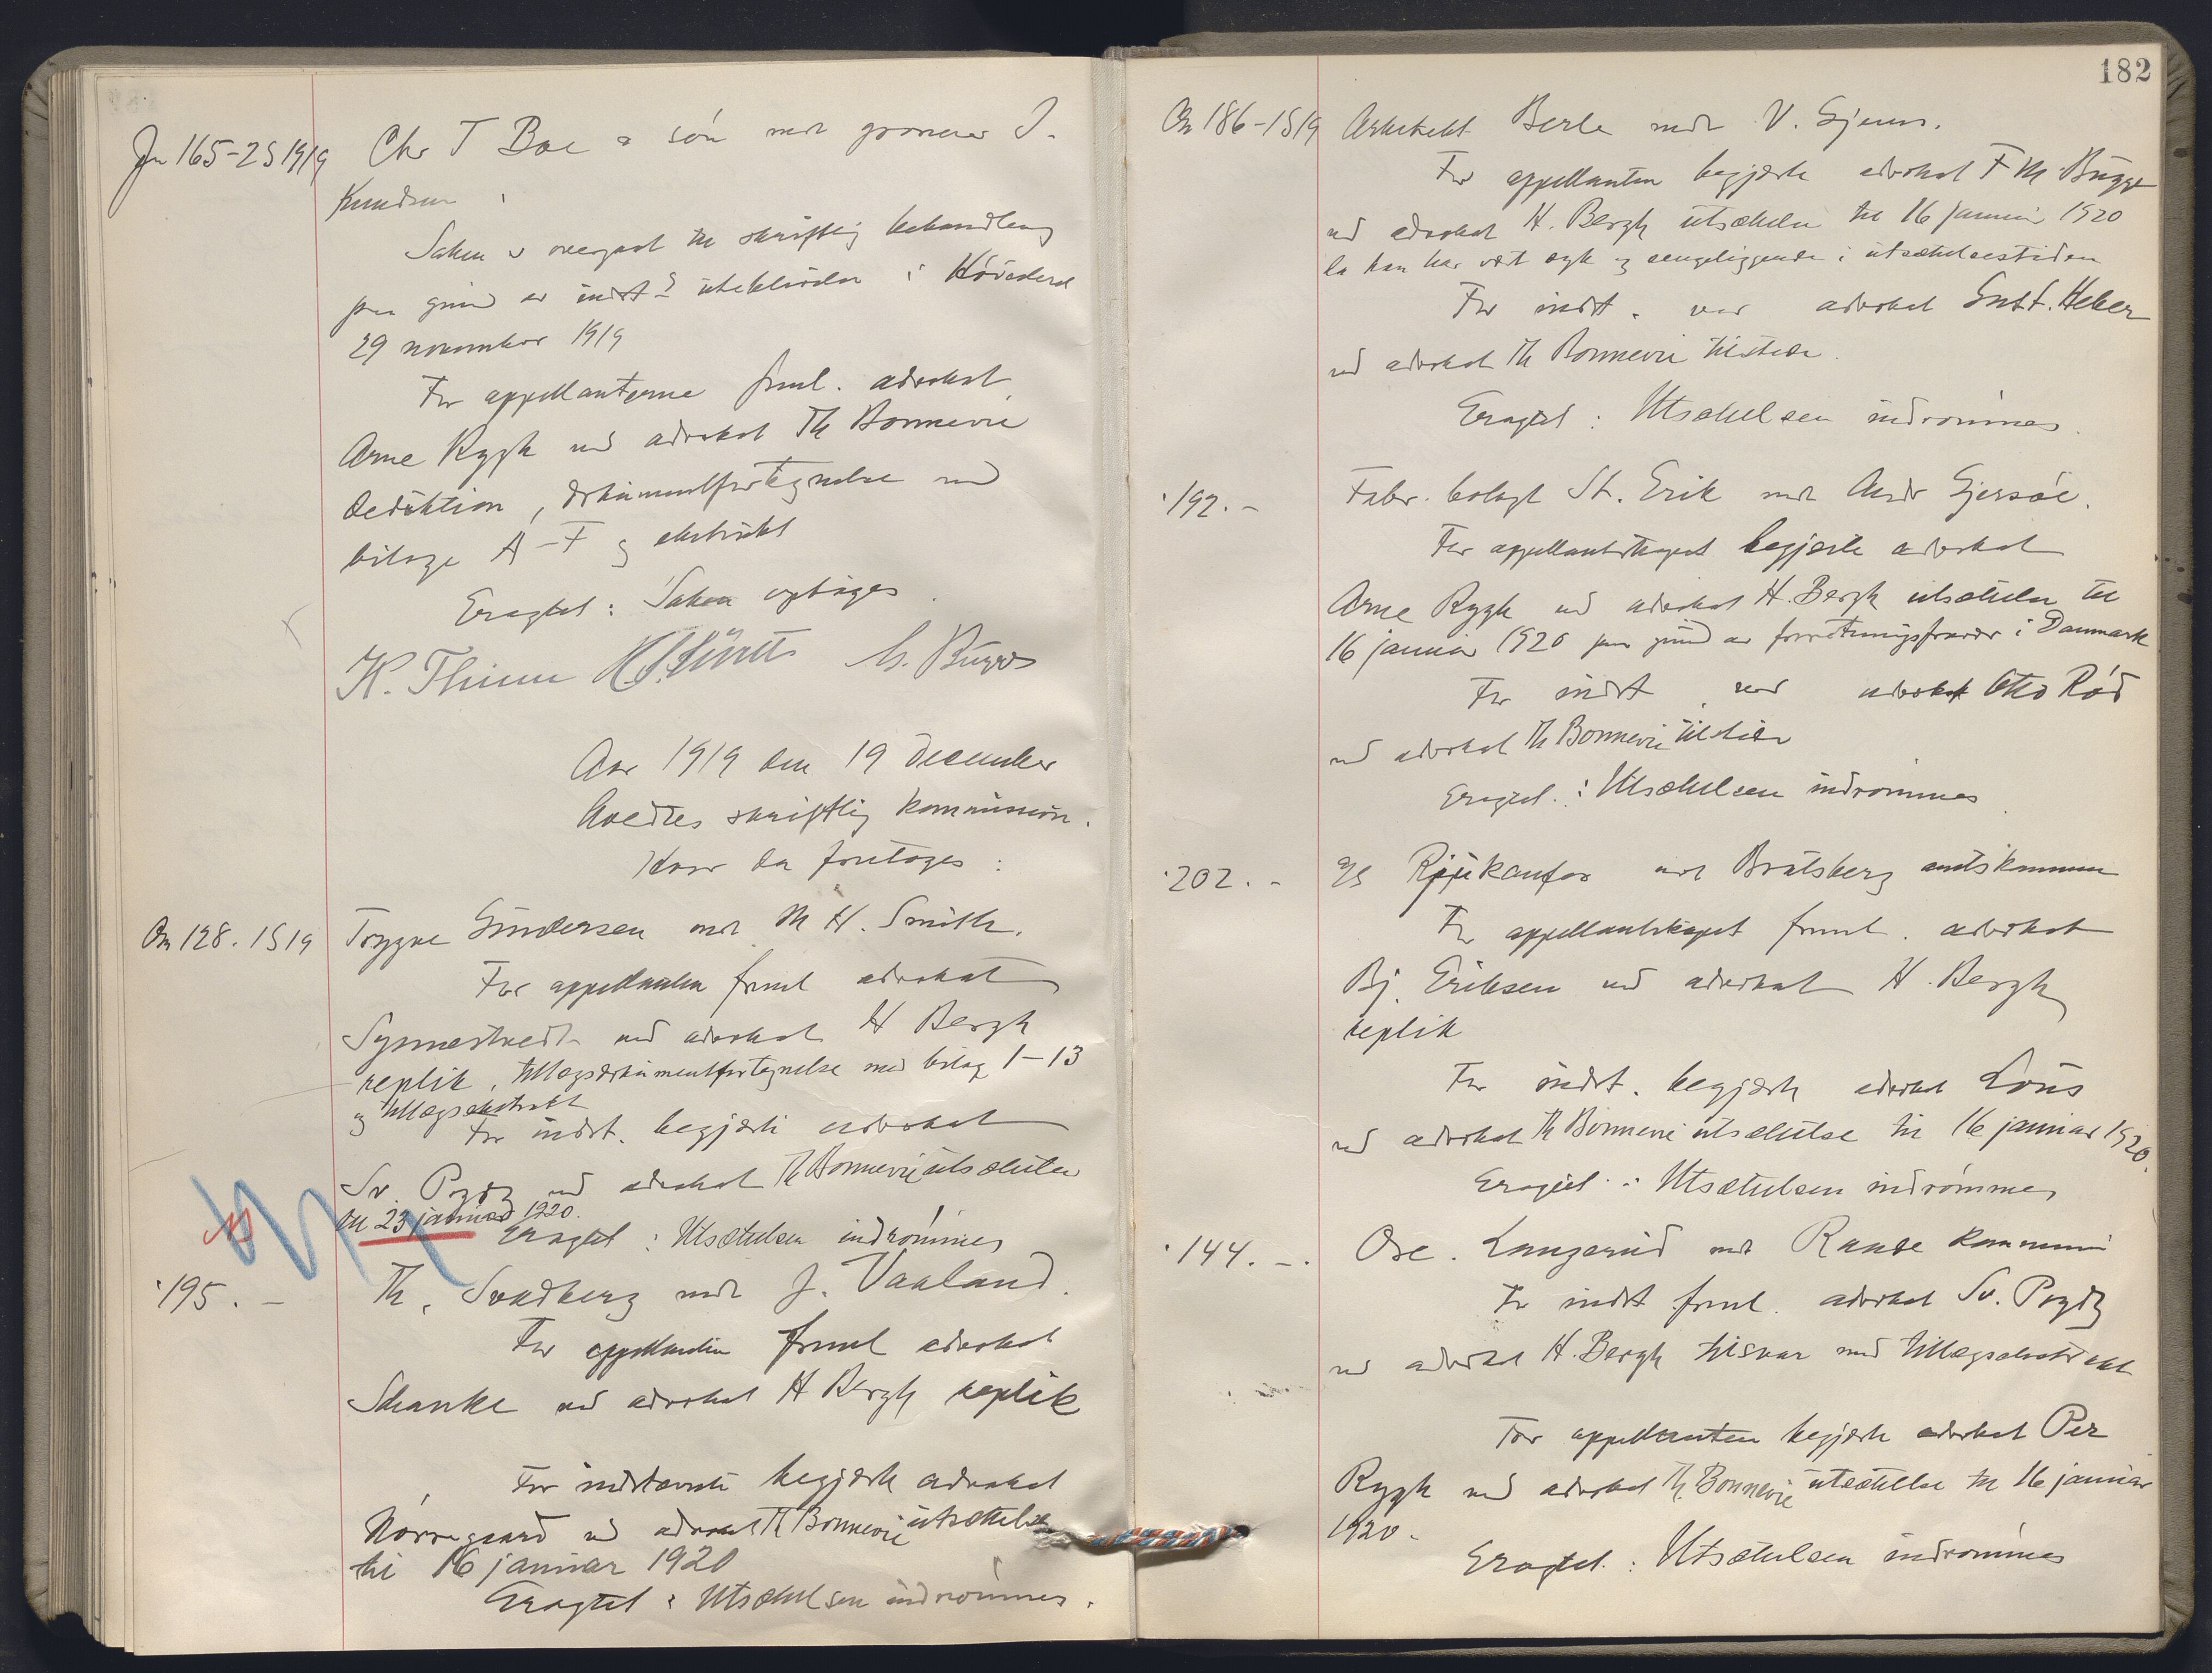 Jn 165-2S 1919 Chr T Boe & søn mot gromerer J.
Knudsen
Saken er overgaat til skriftlig behandling
paa grund av indst:s utebliven i Høiesteret
29 november 1919
For appellanterne freml. advokat
Arne Rygh ved advokat Th Bonnevie
deduktion, dokumentfortegnelse med
bilage A-F og ekstrakt
Eragtet: Saken optages
K. Thinn
Aar 1919 den 19 december
holdtes skriftlig kommission.
Hvor da foretoges:
On 128. 1S19 Trygve Gundersen mot M H. Smith.
For appellanten freml advokat
Synnestvedt ved advokat H Bergh
replik, tillægsdokumentfortegnelse med bilag 1-13
og tillægsekstrakt
For indst. begjærte advokat
Sv. ved advokat Th Bonnevie utsættelse
til 23 januar 1920.
Eragtet: Utsættelsen indrømmes
"195. - Th. Svadberg mot J. Vaaland.
For appellanten freml advokat
Schanke ved advokat H Bergh replik
For indstevnte begjærte advokat
Nørregaard ved advokat Th Bonnevie utsættelse
til 16 januar 1920
Eragtet: Utsættelsen indrømmes.
182
On 186-1S19 Arkitekt Berle mot V. Gjems.
For appellanten begjærte advokat F M Bugge
ved advokat H. Bergh utsættelse til 16 januar 1920
da han har vært syk og sengeliggende i utsættelsestiden
For indst. var advokat Gust. Heber
ved advokat Th Bonnevie tilstede.
Eragtet: Utsættelsen indrømmes.
"192. - Fabr. bolaget St. Erik mot Andr Gjersøe.
For appellantskapet begjærte advokat
Arne Rygh ved advokat H. Bergh utsættelse til
16 januar 1920 paa grund av forretningsfravær i Danmark
For indst. var advokat Otto Rød
ved advokat Th Bonnevie tilstede
Eragtet: Utsættelsen indrømmes.
"202. - A/S Rjukanfos mot Bratsberg amtskommune
For appellantskapet freml. advokat
Bj. Eriksen ved advokat H. Bergh
replik
For indst. begjærte advokat Lous
ved advokat Th Bonnevie utsættelse til 16 januar 1920.
Eragtet: Utsættelsen indrømmes
"144. - Ose. Langerud mot Rande kommune
For indst freml. advokat Sv.
ved advokat H. Bergh tilsvar med tillægsekstrakt
For appellanten begjærte advokat Per
Rygh ved advokat Th. Bonnevie utsættelse til 16 januar
1920.
Eragtet: Utsættelsen indrømmes